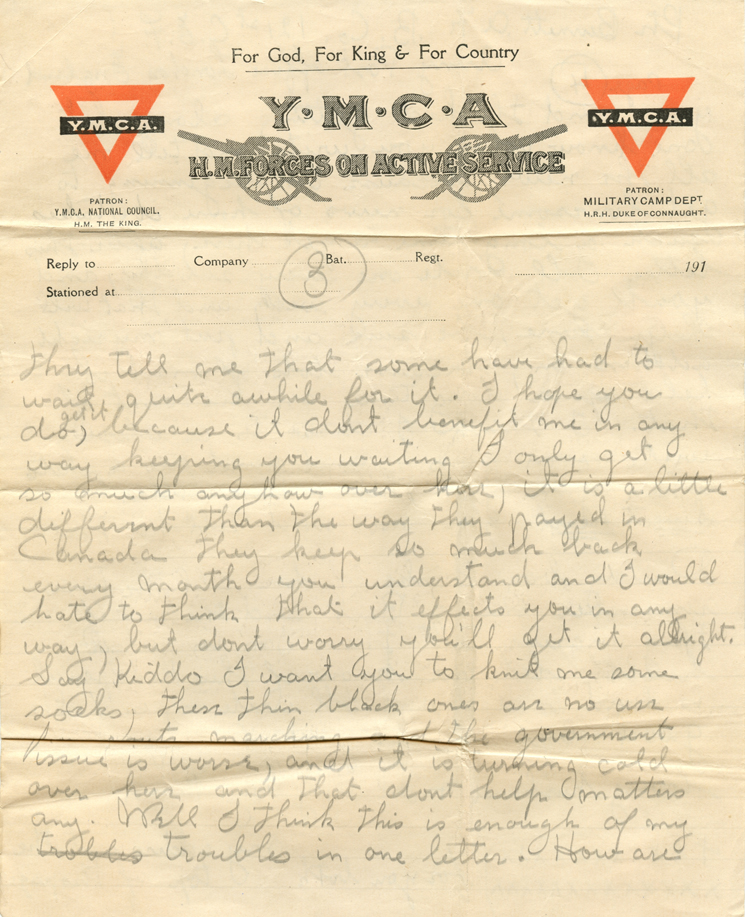 For God, For King & For Country
Y·M·C·A
H.M. FORCES ON ACTIVE SERVICE
Y.M.C.A.
Y.M.C.A.
PATRON:
Y.M.C.A. NATIONAL COUNCIL.
H.M. THE KING.
PATRON:
MILITARY CAMP DEPT
H.R.H. DUKE OF CONNAUGHT.
Reply to Company Bat. Regt.
191
Stationed at
3
they tell me that some have had to
wait quite awhile for it. I hope you
get it
do, because it dont benefit me in any
way keeping you waiting I only get
so much anyhow over here, it is a little
different than the way they payed in
Canada they keep so much back
every month you understand and I would
hate to think that it effects you in any
way, but dont worry you'll get it allright.
Say Kiddo I want you to knit me some
socks, these thin black ones are no use
marching and the government
issue is worse, and it is turning cold
over here and that dont help matters
any. Well I think this is enough of my
trobles troubles in one letter. How are